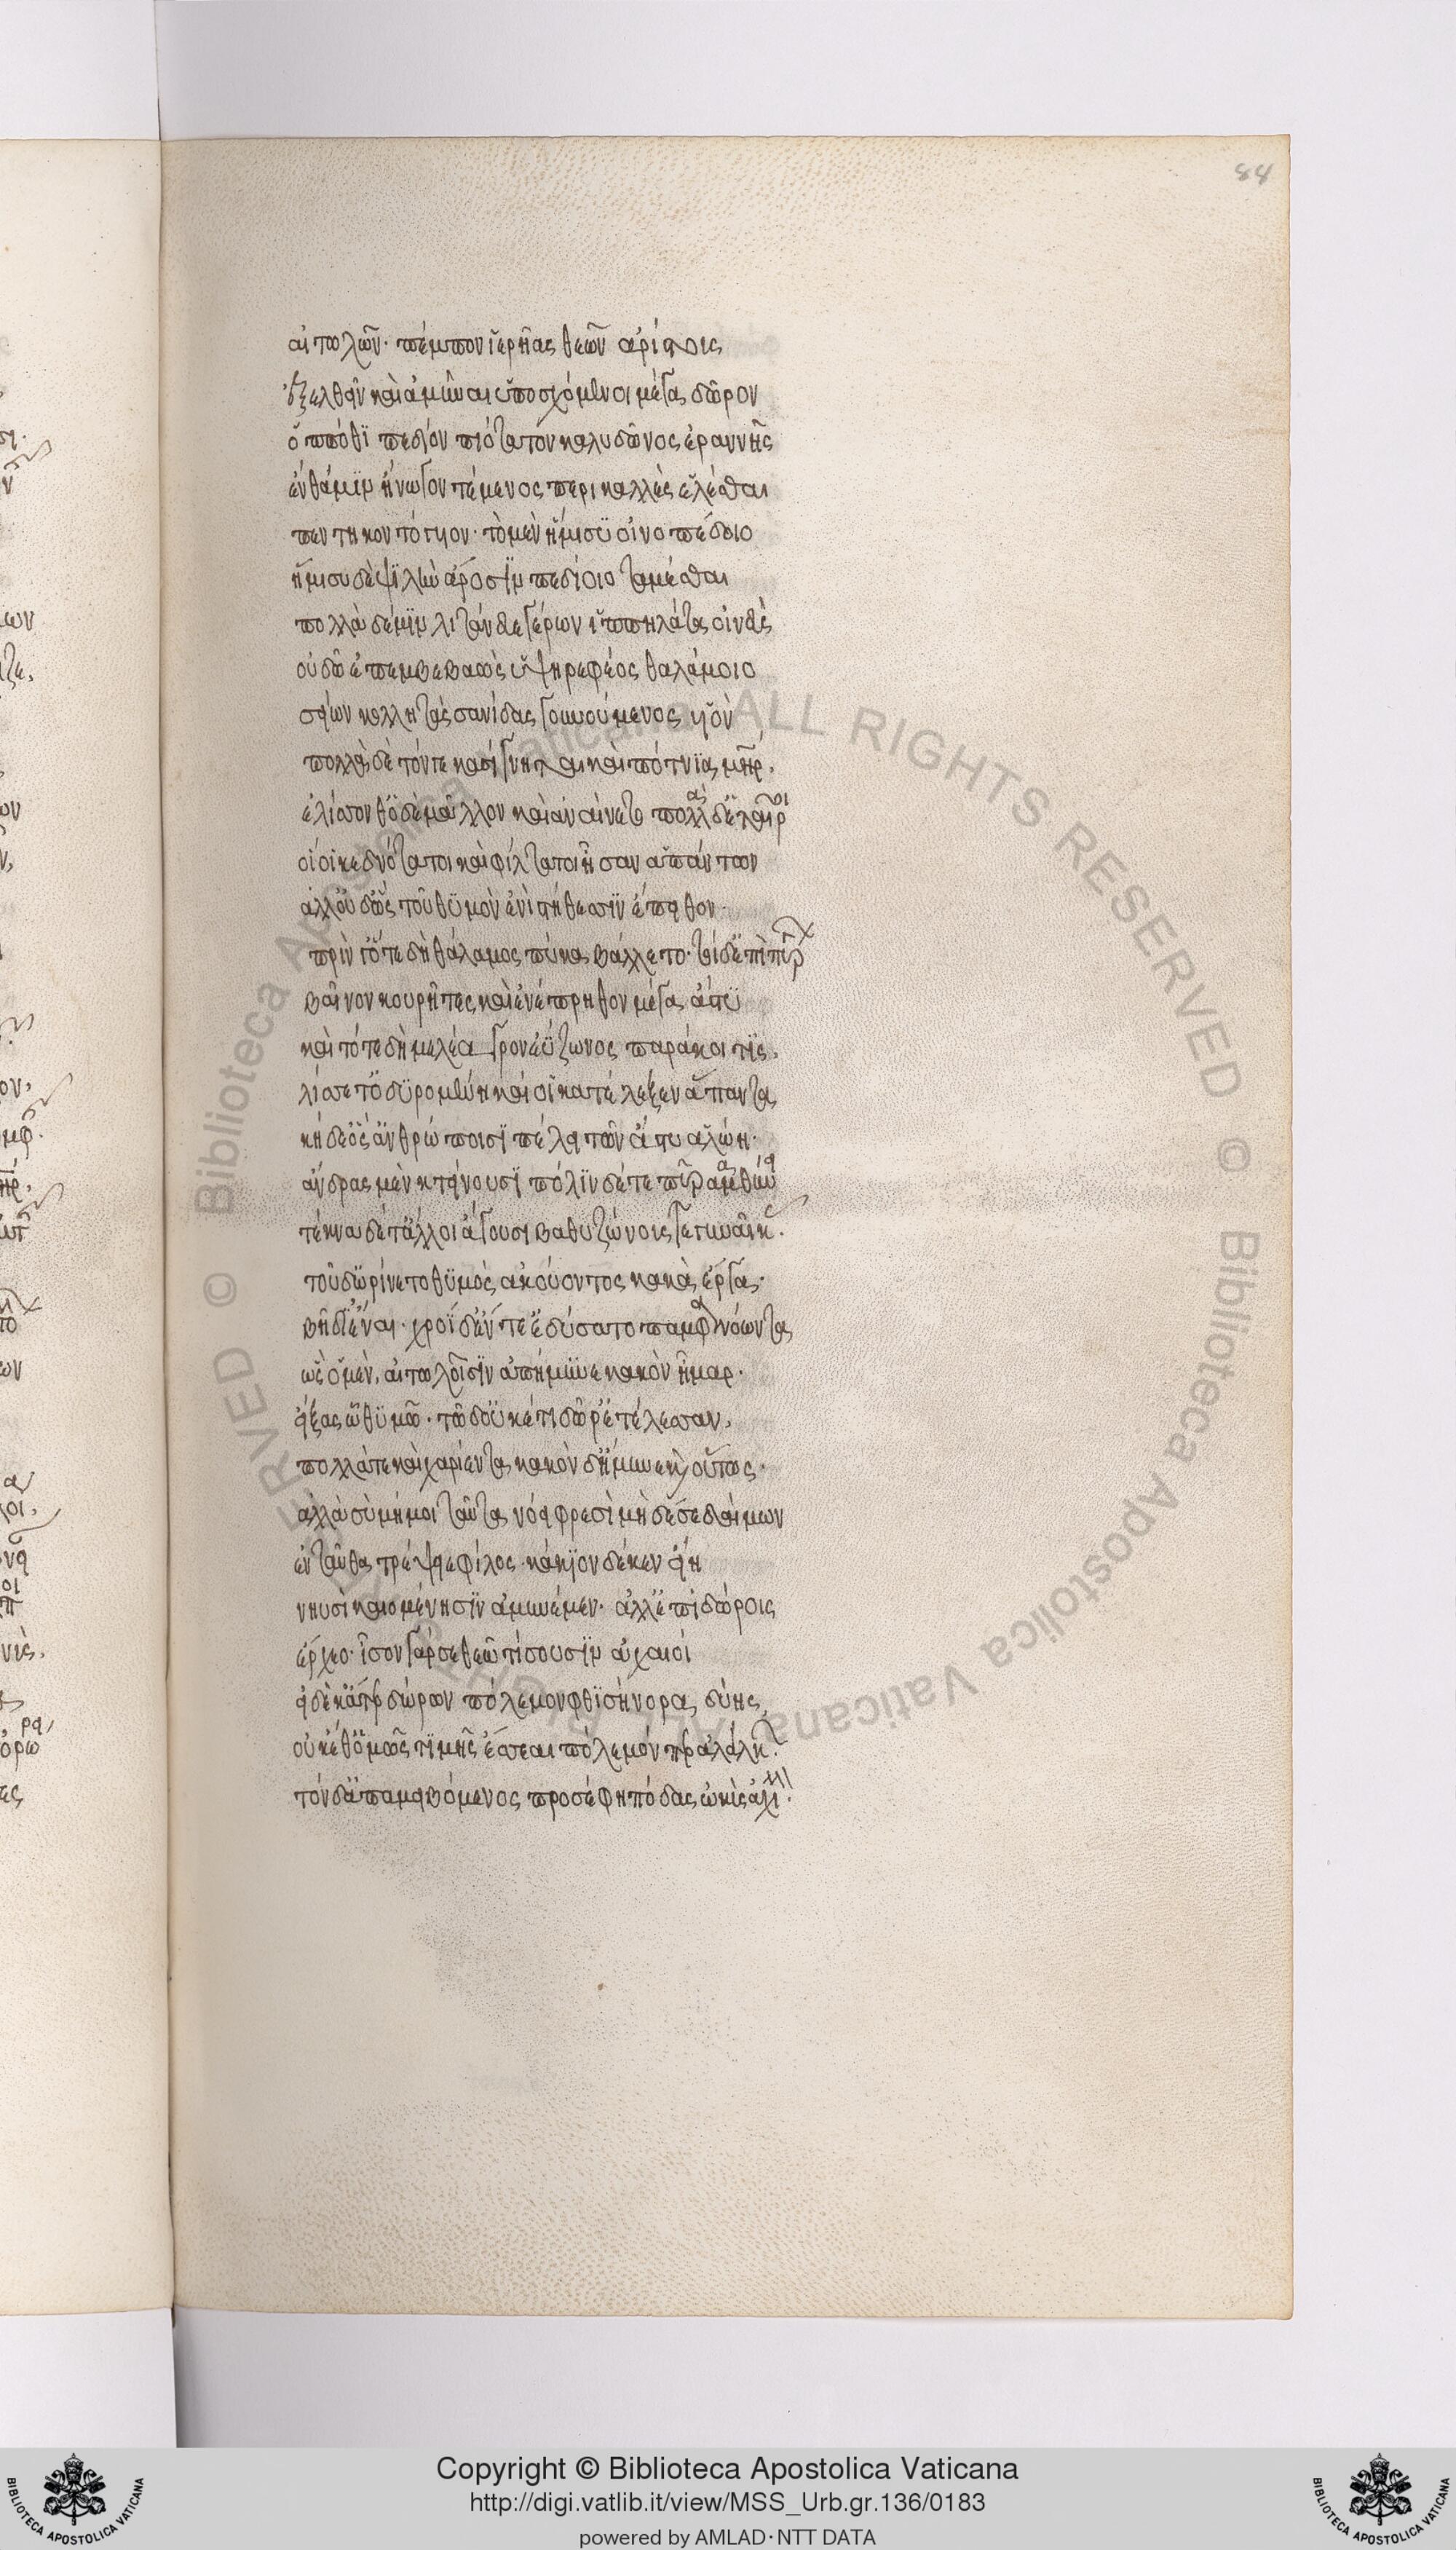 84
αἰτωλῶν· πέμπον ἱερῆας θεῶν ἀρίστοις
ἐξελθεῖν καὶ ἀμῦναι ὑποσχόμενοι μέγα δῶρον
ὁππόθι πεδίον πιότατον καλυδῶνος ἐραννῆς
ἔνθά μιμ ἤνωγον τέμενος περικαλλὲς ἑλέσθαι
πεντηκοντόγυον· τὸ μὲν ἥμισυ οἰνοπέδοιο
ἥμισυ δὲ ψιλὴν ἄροσιμ πεδίοιο ταμέσθαι
πολλὰ δέ μιμ λιτάνδε γέρων ἱππηλάτα οἰνεὺς
οὐδοῦ ἐπεμβεβαὼς ὑψηρεφέος θαλάμοιο
σείων κολλητὰς σανίδας γουνούμενος υἱὸν
πολλὰ δὲ τόντε κασίγνηται καὶ πότνια μῆτηρ,
ἐλίσσονθ ὁ δὲ μᾶλλον καὶ ἀναίνετο πολλὰ δ ἑταῖροι
οἵ οἱ κεδνότατοι καὶ φίλτατοι ἦσαν ἁπάντων
ἀλλ οὐδ ὣς τοῦ θυμὸν ἐνὶ στήθεσσιν ἔπειθον·
πρίν γ ὅτε δὴ θάλαμος πύκα βάλλετο· τοὶ δ ἐπὶ πύργων
βαῖνον κουρῆτες καὶ ἐνέπρηθον μέγα ἄστυ
καὶ τότε δὴ μελέαγρον ἐύζωνος παράκοιτις,
λίσσετ ὀδυρομένη καί οἱ κατέλεξεν ἅπαντα
κήδε ὅσ ἀνθρώποισι πέλει τῶν ἄστυ ἁλώη·
ἄνδρας μὲν κτείνουσι πόλιν δέ τε πῦρ ἀμαθύνει
τέκνα δέ τ ἄλλοι ἄγουσι βαθυζώνους τε γυναῖκας·
τοῦ δ ὠρίνετο θυμὸς ἀκούοντος κακὰ ἔργα·
βῆ δ ἰέναι· χροῒ δ ἔντε ἐδύσατο παμφανόωντα
ὣς ὁ μὲν, αἰτωλοῖσιν ἀπήμυνε κακὸν ἦμαρ·
εἴξας ὧ θυμῶ· τῶ δ οὐκέτι δῶρ ἐτέλεσσαν,
πολλά τε καὶ χαρίεντα κακὸν δ ἤμυνε καὶ οὕτως·
ἀλλὰ σὺ μή μοι ταῦτα νόει φρεσὶ μὴ δέ σε δαίμων
ἐνταῦθα τρέψειε φίλος· κάκιον δέ κεν εἴη
νηυσὶ καιομένησιν ἀμυνέμεν· ἀλλ ἐπὶ δώροις
ἔρχεο· ἶσον γάρ σε θεῶ τίσουσιμ ἀχαιοί
εἰ δέ κ ἄτερ δώρων πόλεμον φθισήνορα δύης
οὐκέθ ὁμῶς τιμῆς ἔσεαι πόλεμόν περ ἀλαλκών·
τὸν δ ἀπαμειβόμενος προσέφη πόδας ὠκὺς ἀχιλλεύς·
Copyright © Biblioteca Apostolica Vaticana
http://digi.vatlib.it/view/MSS_Urb.gr.136/0183
powered by AMLAD·NTT DATA